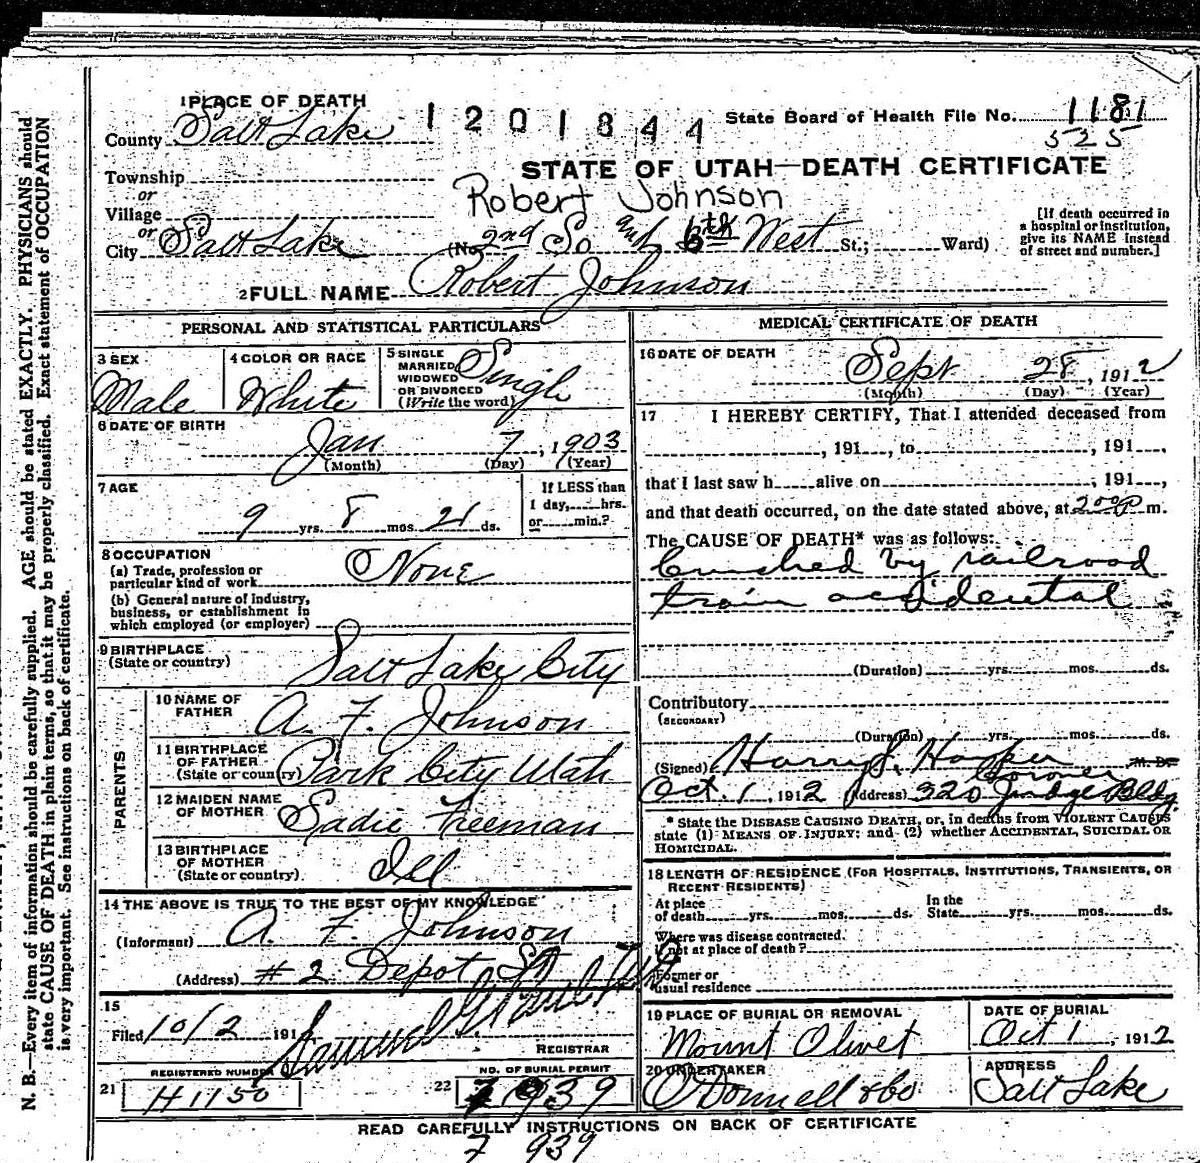 1 PLACE OF DEATH
County Salt Lake
1201844
State Board of Health File No. 1181
525
STATE OF UTAH—DEATH CERTIFICATE
Township
or
Village
or
City Salt Lake
Robert Johnson
(No. 2nd So and 6th West St.; Ward)
[If death occurred in a hospital or institution, give its NAME instead of street and number.]
2 FULL NAME Robert Johnson
PERSONAL AND STATISTICAL PARTICULARS
3 SEX Male
4 COLOR OR RACE White
5 SINGLE MARRIED WIDOWED OR DIVORCED (Write the word) Single
6 DATE OF BIRTH
Jan 7, 1903
(Month) (Day) (Year)
7 AGE
9 yrs. 8 mos. 21 ds.
If LESS than 1 day, hrs. or min.?
8 OCCUPATION
(a) Trade, profession or particular kind of work None
(b) General nature of industry, business, or establishment in which employed (or employer)
9 BIRTHPLACE
(State or country) Salt Lake City
PARENTS
10 NAME OF FATHER A. F. Johnson
11 BIRTHPLACE OF FATHER (State or country) Park City Utah
12 MAIDEN NAME OF MOTHER Sadie Freeman
13 BIRTHPLACE OF MOTHER (State or country) Ill
14 THE ABOVE IS TRUE TO THE BEST OF MY KNOWLEDGE
(Informant) A. F. Johnson
(Address) #2 Depot St
15
Filed 10/2 191
Samuel
REGISTRAR
REGISTERED NUMBER
21 H1150
NO. OF BURIAL PERMIT
22 7 939
MEDICAL CERTIFICATE OF DEATH
16 DATE OF DEATH
Sept 28, 1912
(Month) (Day) (Year)
17 I HEREBY CERTIFY, That I attended deceased from
, 191 , to , 191 ,
that I last saw h alive on , 191 ,
and that death occurred, on the date stated above, at 2 00 P m.
The CAUSE OF DEATH* was as follows:
Crushed by railroad
train accidental
(Duration) yrs. mos. ds.
Contributory
(SECONDARY)
(Duration) yrs. mos. ds.
(Signed) Harry S. Harper M. D.
Coroner
Oct. 1, 1912 (Address) 320 Judge Bldg.
* State the DISEASE CAUSING DEATH, or, in deaths from VIOLENT CAUSES
state (1) MEANS OF INJURY; and (2) whether ACCIDENTAL, SUICIDAL OR
HOMICIDAL.
18 LENGTH OF RESIDENCE (FOR HOSPITALS, INSTITUTIONS, TRANSIENTS, OR
RECENT RESIDENTS)
At place of death yrs. mos. ds. In the State yrs. mos. ds.
Where was disease contracted,
if not at place of death?
Former or
usual residence
19 PLACE OF BURIAL OR REMOVAL
Mount Olivet
DATE OF BURIAL
Oct 1, 1912
20 UNDERTAKER
O'Donnell & Co.
ADDRESS
Salt Lake
READ CAREFULLY INSTRUCTIONS ON BACK OF CERTIFICATE
7 939
N. B.—Every item of information should be carefully supplied. AGE should be stated EXACTLY. PHYSICIANS should
state CAUSE OF DEATH in plain terms, so that it may be properly classified. Exact statement of OCCUPATION
is very important. See instructions on back of certificate.